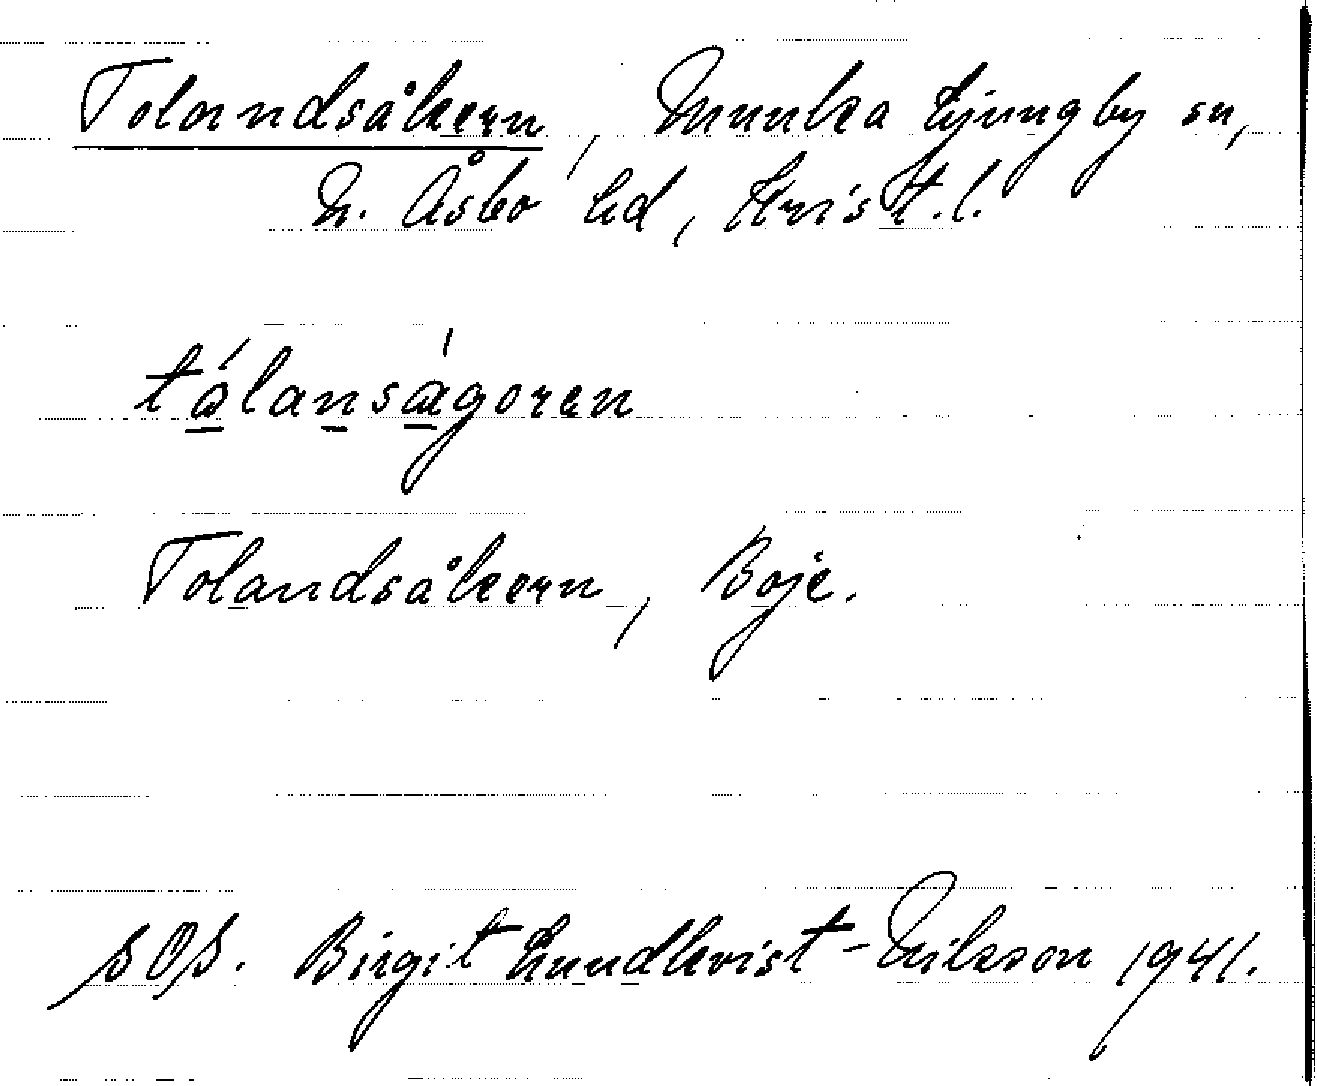 Tolandsåkern, Munka Ljungby sn,
N. Åsbo hd, Krist. l.
tålanságoren
Tolandsåkern, Boje.
SOS. Birgit Lundkvist-Nilsson 1941.